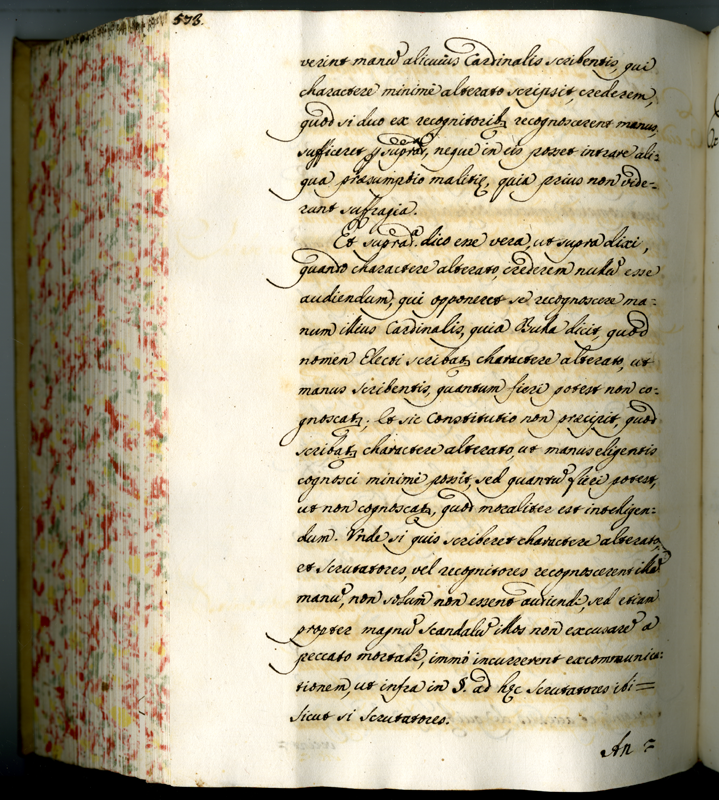 578.
verint manũ alicuius Cardinalis scribentis, qui
charactere minimè alterato scripsit, crederem,
quod si duo ex recognitorib; recognoscerent manus,
sufficeret p suprad.ᵃ, neque in eis posset intrare ali=
qua præsumptio malitię, quia prius non vide=
runt suffragia.
Et suprad.ᵃ dico esse vera, ut supra dixi,
quando charactere alterato, crederem nullũ esse
audiendum, qui opponeret se recognoscere ma=
num illius Cardinalis, quia Bulla dicit, quod
nomen Electi scribat; charactere alterato, ut
manus scribentis, quantum fieri potest non co=
gnoscat;. Et sic Constitutio non precipit, quod
scribat; charactere alterato, ut manus eligentis
cognosci minimè possit, sed quantũ fieri potest,
ut non cognoscat;, quod moraliter est intelligen=
dum. Vnde si quis scriberet charactere alterato,
et Scrutatores, vel recognitores recognoscerent illã
manũ, non solum non essent audiendi, sed etiam
propter magnũ scandalũ illos non excusarẽ à
peccato mortali, immò incurrerent excommunica=
tionem, ut infra in §. ad hęc Scrutatores ibi =
sicut si Scrutatores.
An =